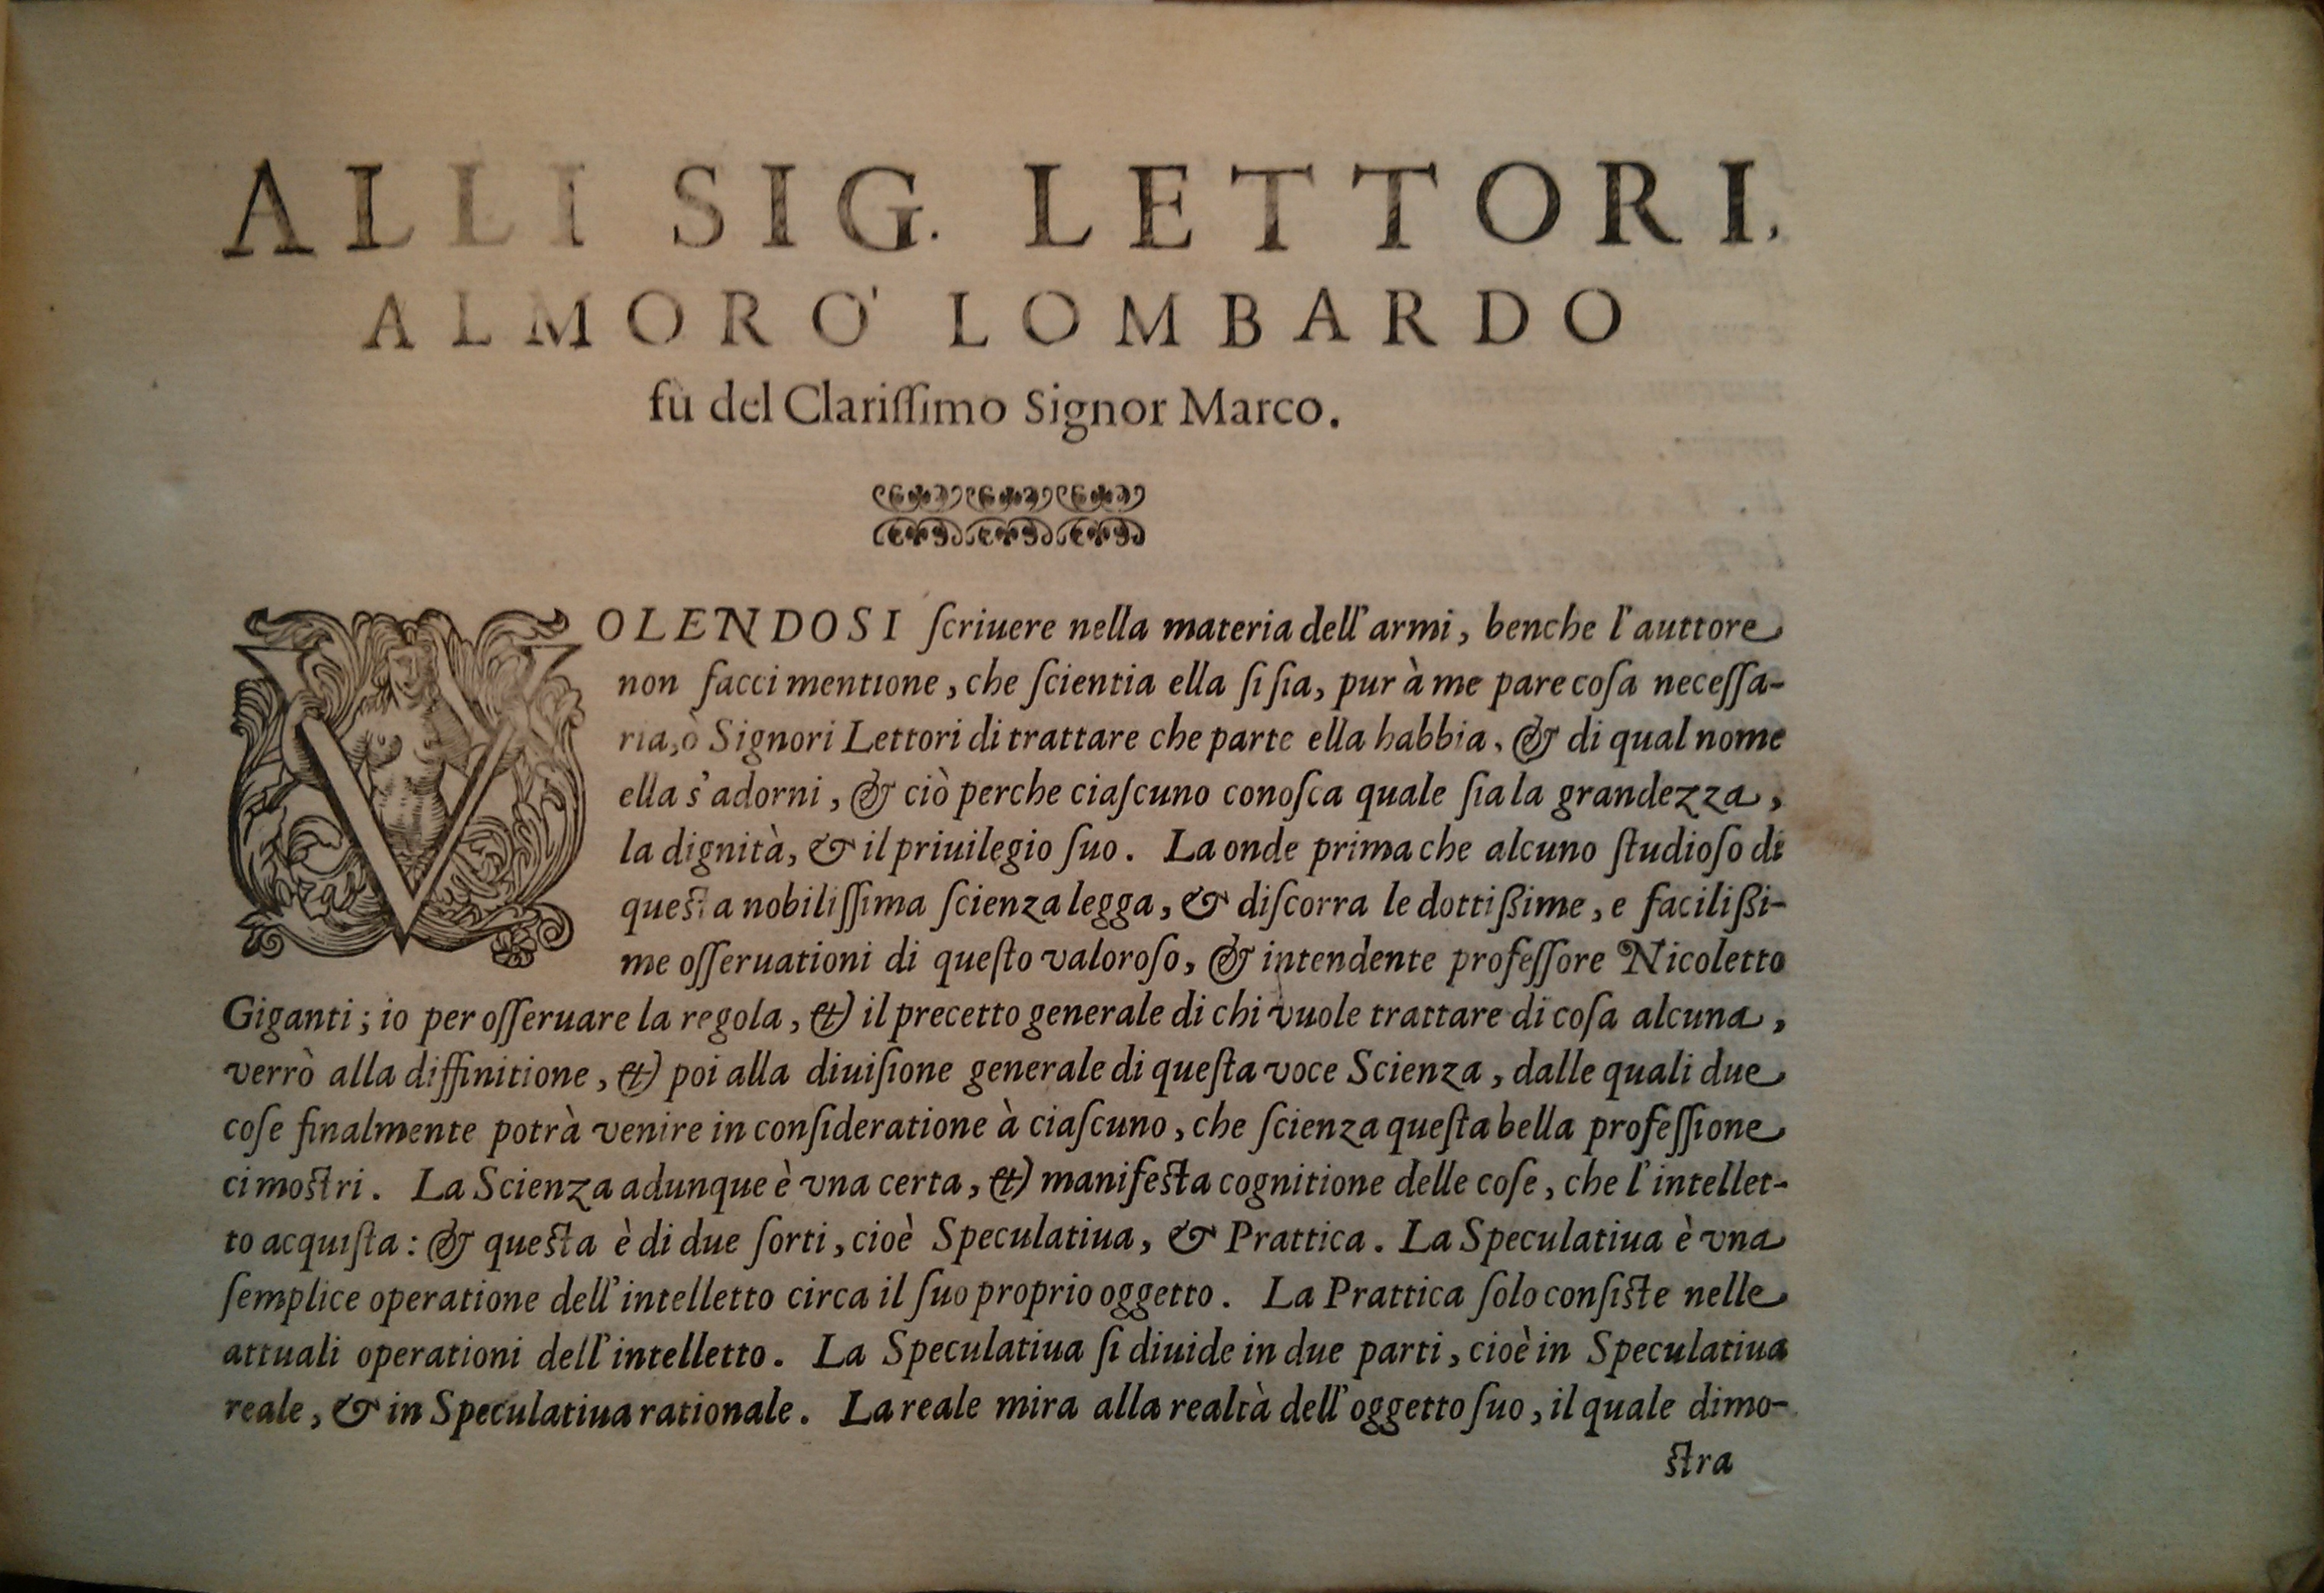 ALLI SIG. LETTORI,
ALMORO' LOMBARDO
fù del Clariſſimo Signor Marco.
VOLENDOSI ſcriuere nella materia dell'armi, benche l'auttore
non facci mentione, che ſcientia ella ſi ſia, pur à me pare coſa neceſſa-
ria, ò Signori Lettori di trattare che parte ella habbia, & di qual nome
ella s'adorni, & ciò perche ciaſcuno conoſca quale ſia la grandezza,
la dignità, & il priuilegio ſuo. La onde prima che alcuno ſtudioſo di
queſta nobiliſſima ſcienza legga, & diſcorra le dottißime, e facilißi-
me oſſeruationi di queſto valoroſo, & intendente profeſſore Nicoletto
Giganti; io per oſſeruare la regola, & il precetto generale di chi vuole trattare di coſa alcuna,
verrò alla diffinitione, & poi alla diuiſione generale di queſta voce Scienza, dalle quali due
coſe finalmente potrà venire in conſideratione à ciaſcuno, che ſcienza queſta bella profeſſione
ci moſtri. La Scienza adunque è vna certa, & manifeſta cognitione delle coſe, che l'intellet-
to acquiſta: & queſta è di due ſorti, cioè Speculatiua, & Prattica. La Speculatiua è vna
ſemplice operatione dell'intelletto circa il ſuo proprio oggetto. La Prattica ſolo conſiſte nelle
attuali operationi dell'intelletto. La Speculatiua ſi diuide in due parti, cioè in Speculatiua
reale, & in Speculatiua rationale. La reale mira alla realtà dell'oggetto ſuo, il quale dimo-
ſtra